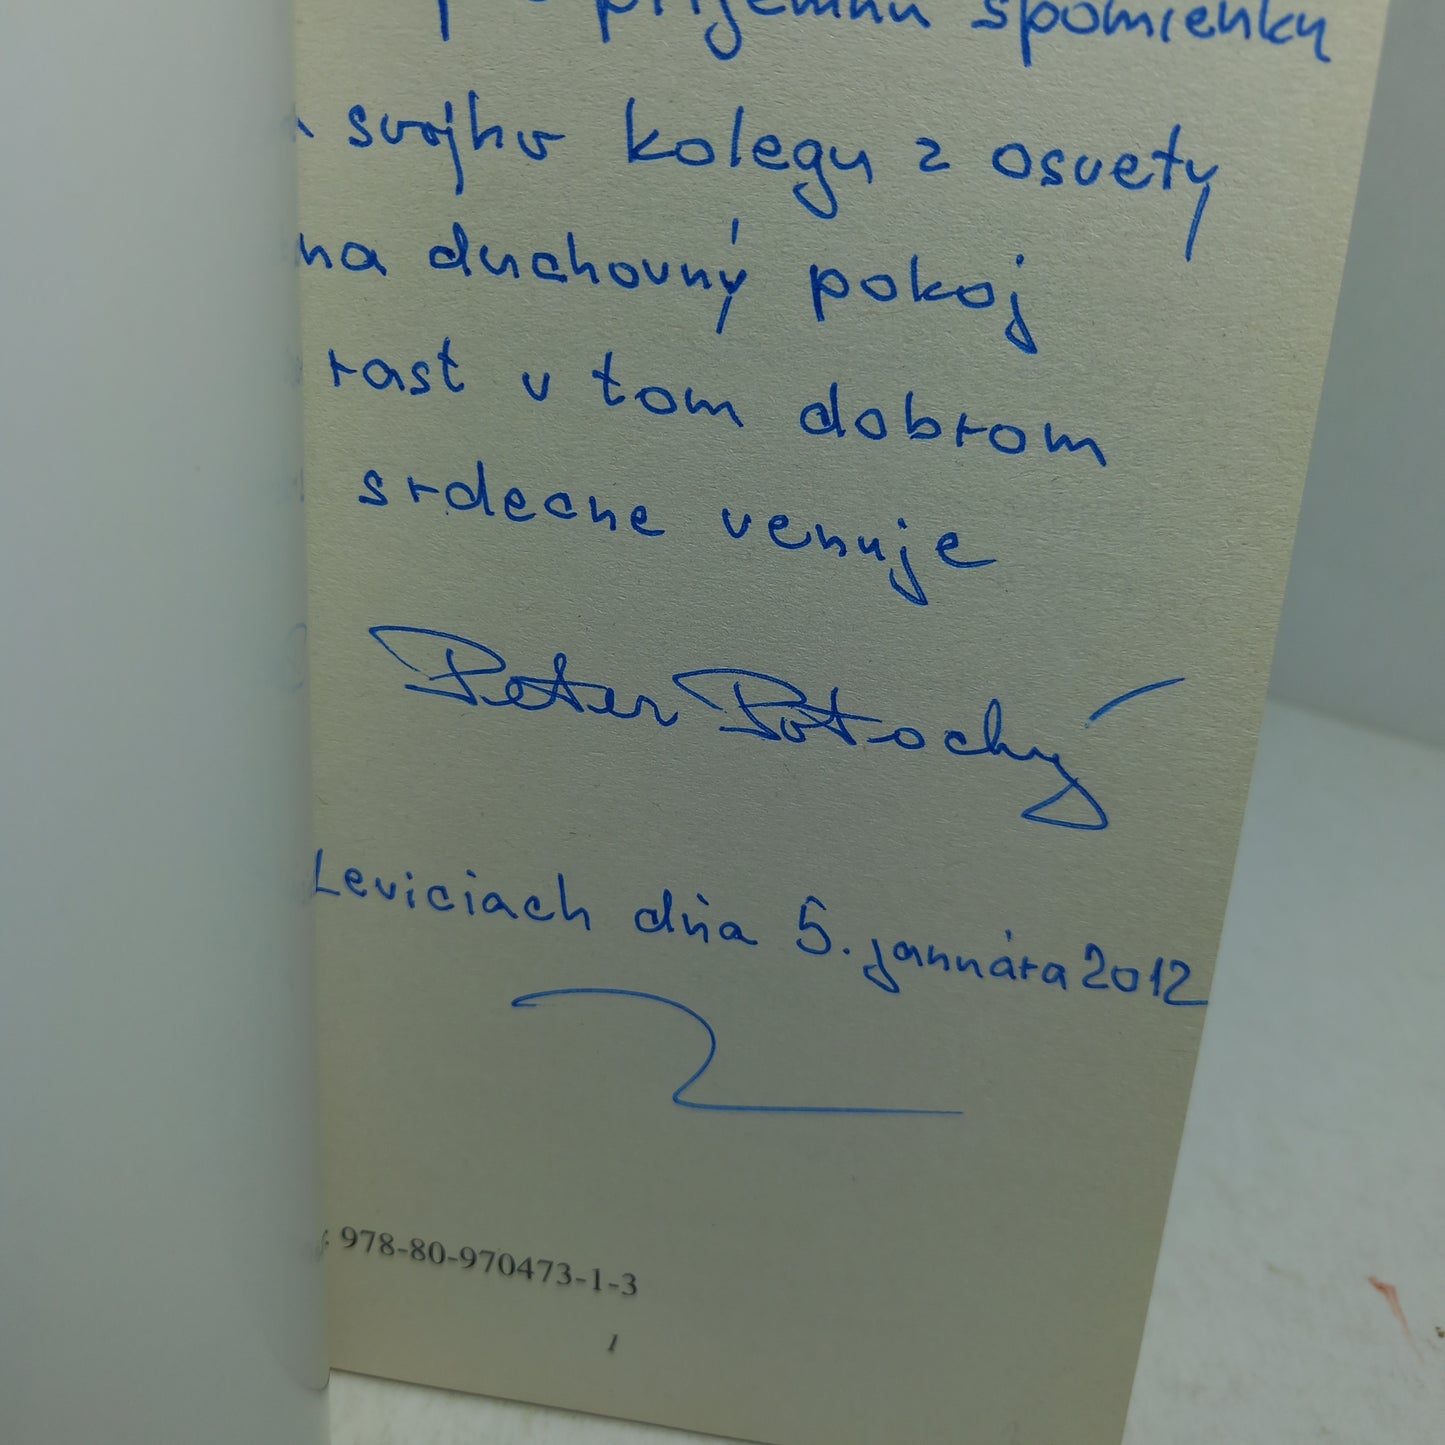 príjemnú spomienku
svojho kolegu z osvety
na duchovný pokoj
rast v tom dobrom
srdecne venuje
Peter Potochý
Leviciach dňa 5. januára 2012
978-80-970473-1-3
1